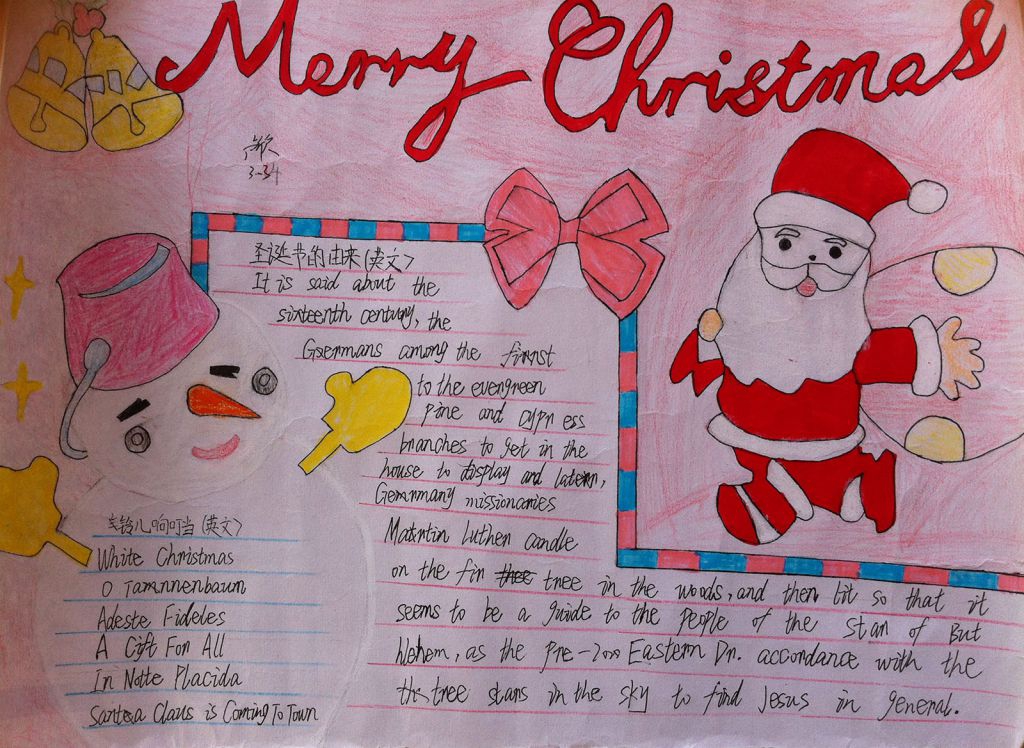 Merry Christmas
3-34
圣诞节的由来(英文)
It is said about the
sixteenth century, the
Germans among the firnst
to the evengreen
pine and cypr ess
branches to get in the
house to display and latern,
Gemrmany missionaries
Matrtin Luthen candle
on the fin tree in the woods, and then lit so that it
seems to be a guide to the people of the stan of But
hlehem, as the pre-2000 Eastern Dn. accordance with the
the tree stans in the sky to find Jesus in general.
铃儿响叮当(英文)
White Christmas
O Tamnnenbaum
Adeste Fideles
A Gift For All
In Notte Placida
Santea Claus is Coming To Town